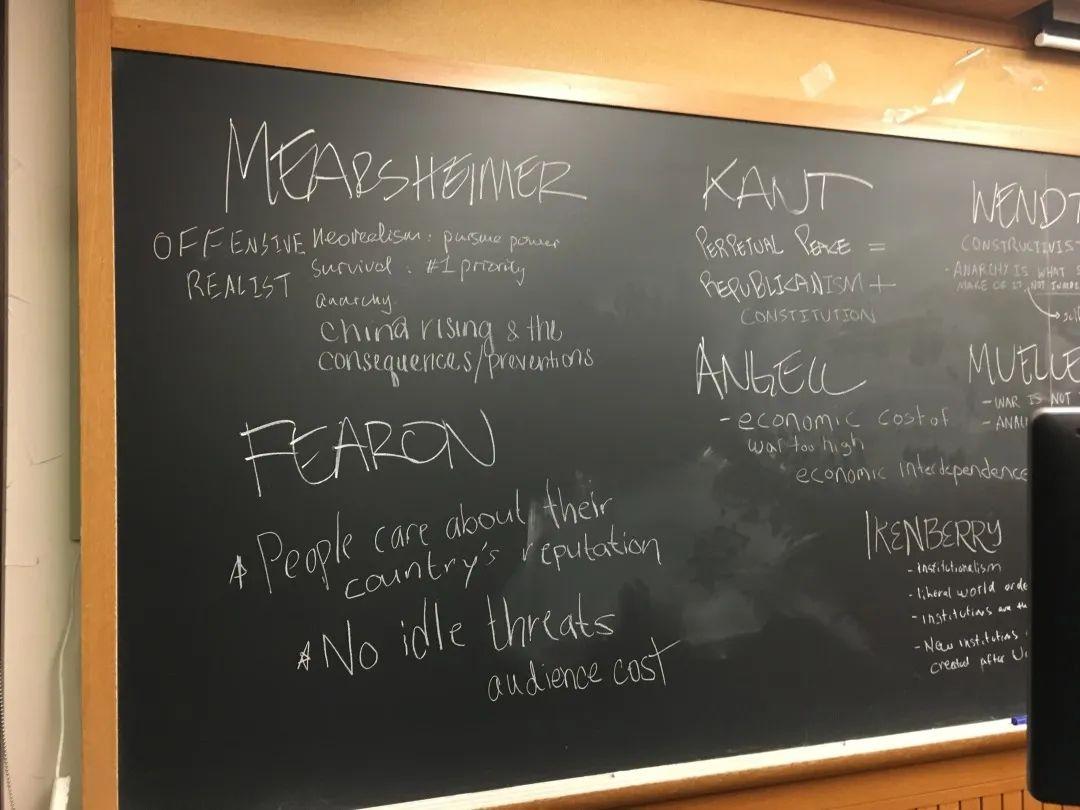 MEARSHEIMER
OFFENSIVE
REALIST
Neorealism: pursue power
Survival: #1 priority
anarchy
China rising & the
consequences/preventions
FEARON
People care about their
country's reputation
No idle threats
audience cost
KANT
PERPETUAL PEACE =
REPUBLICANISM +
CONSTITUTION
ANGELL
- economic cost of
war too high
economic interdependence
WENDT
CONSTRUCTIVIST
- ANARCHY IS WHAT
MAKE OF IT, NOT
MUELLE
- WAR IS NOT
IKENBERRY
- Institutionalism
- liberal world orde
- institutions are
- New institutions
created after